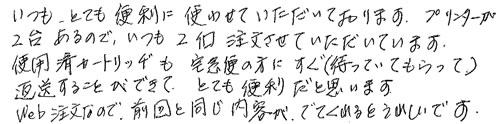 いつも、とても便利に使わせていただいております。プリンターが
2台あるので、いつも2個注文させていただいています。
使用済カートリッヂも宅急便の方にすぐ(待っていてもらって)
返送することができて、とても便利だと思います。
Web注文なので、前回と同じ内容が、でてくれるとうれしいです。